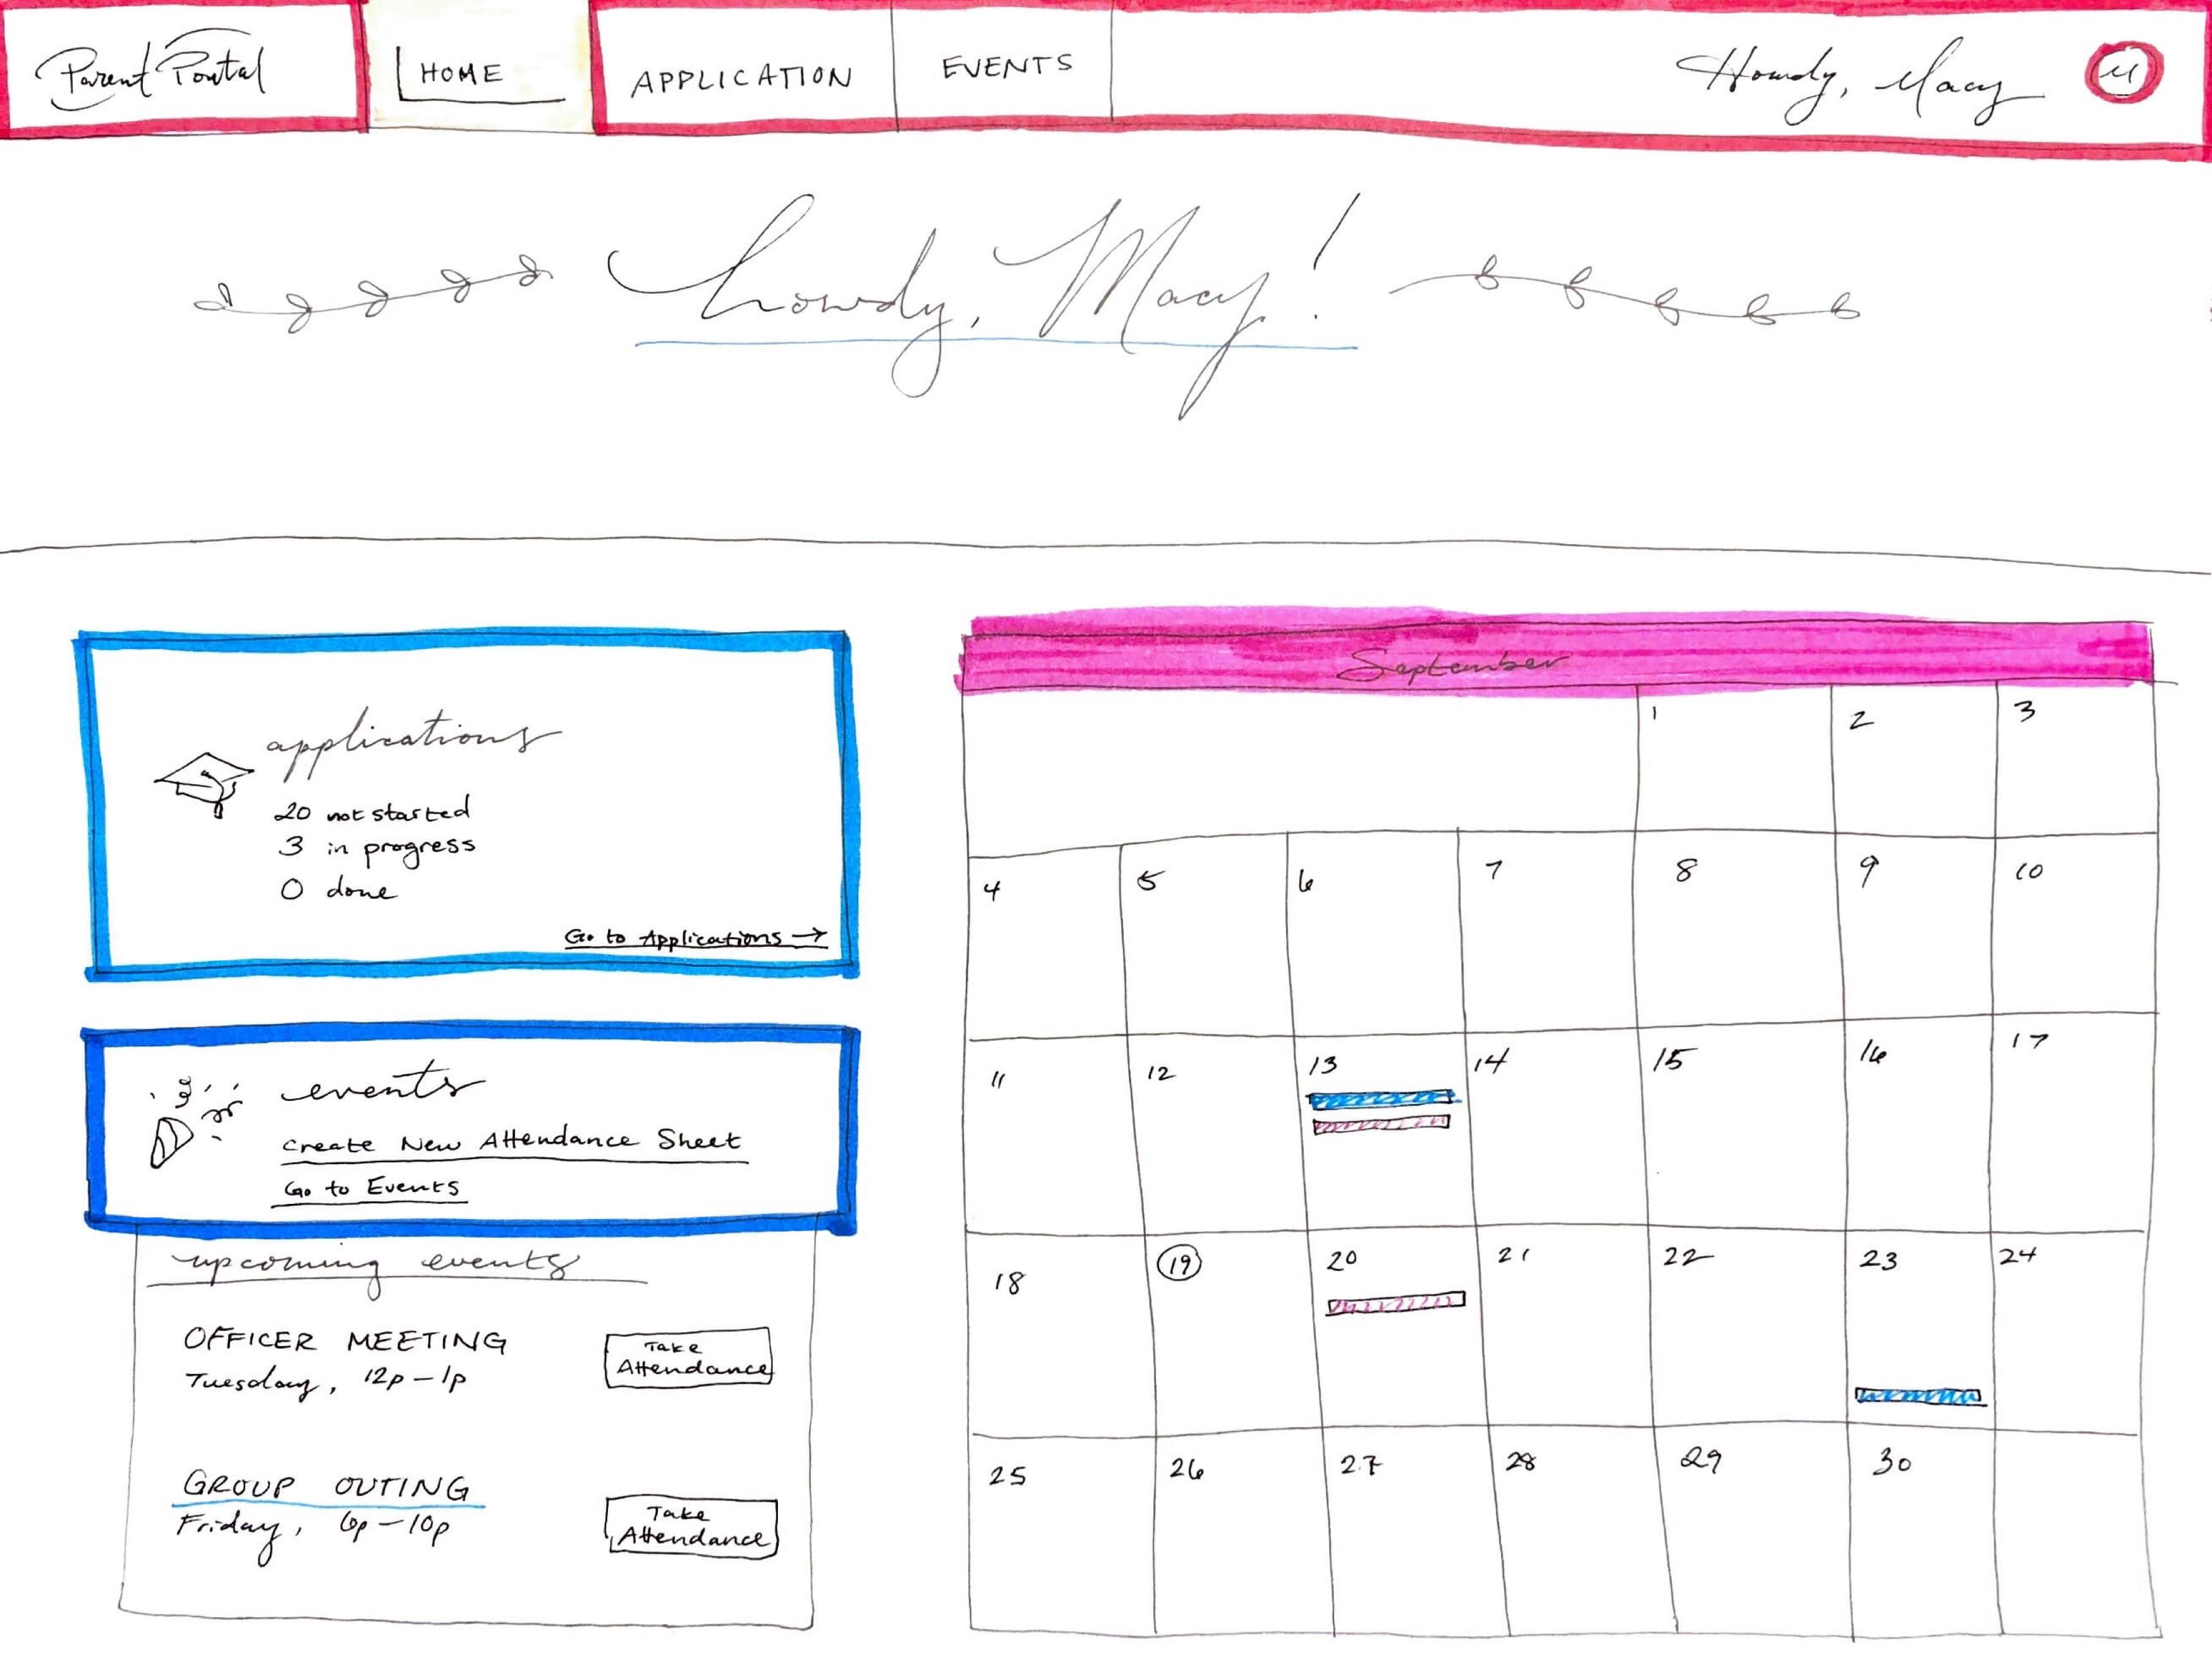 Parent Portal
HOME
APPLICATION
EVENTS
Howdy, Macy
M
howdy, Macy!
applications
20 not started
3 in progress
0 done
Go to Applications →
events
Create New Attendance Sheet
Go to Events
upcoming events
OFFICER MEETING
Tuesday, 12p - 1p
Take
Attendance
GROUP OUTING
Friday, 6p - 10p
Take
Attendance
September
1 2 3
4 5 6 7 8 9 10
11 12 13 14 15 16 17
18 19 20 21 22 23 24
25 26 27 28 29 30